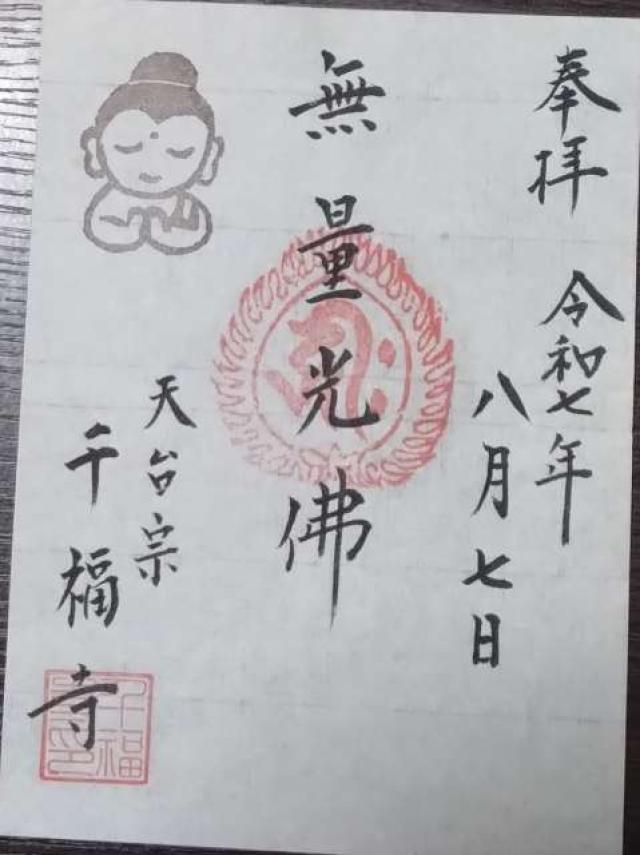 奉拝 令和七年
八月七日
無量光佛
天台宗
千福寺